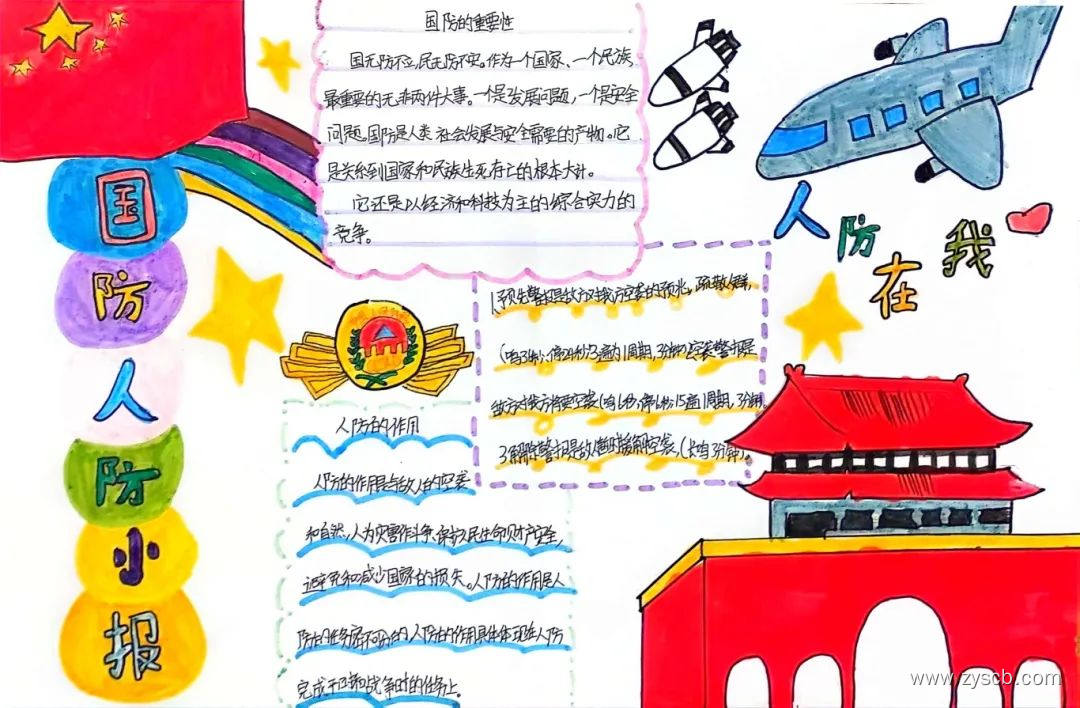 国防人防小报
国防的重要性
国无防不立,民无防不安。作为一个国家、一个民族
最重要的无非两件大事。一个是发展问题,一个是安全
问题。国防是人类社会发展与安全需要的产物。它
是关系到国家和民族生死存亡的根本大计。
它还是以经济和科技为主的综合实力的
竞争。
人防在我
1.预先警报是敌方对我方空袭的预兆。疏散人群,
(鸣36秒,停24秒,3遍为1周期,3分钟)2空袭警报是
敌方对我方将要空袭(鸣6秒,停6秒,15遍1周期,3分钟。
3解除警报是敌暂时解除空袭,(长鸣3分钟)。
人防的作用
人防的作用是与敌人的空袭
和自然,人为灾害作斗争,保护人民生命财产安全,
避免和减少国家的损失。人防的作用是人
防的任务密不可分的人防的作用具体体现在人防
完成平时和战争时的任务上。
www.zyscb.com